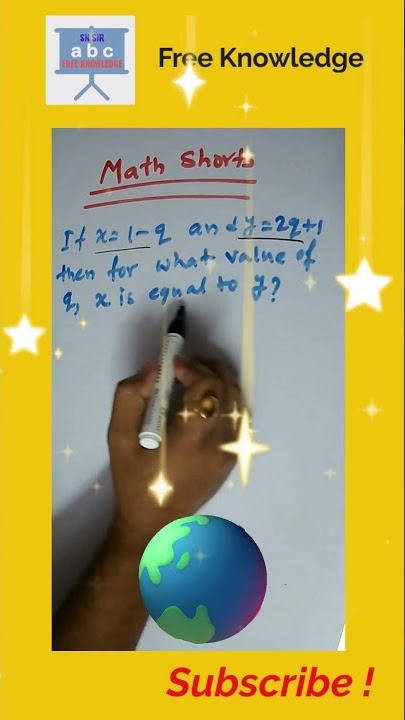 SN SIR
a b c
FREE KNOWLEDGE
Free Knowledge
Math Shorts
If x=1-q and y=2q+1
then for what value of
q, x is equal to y?
Subscribe !